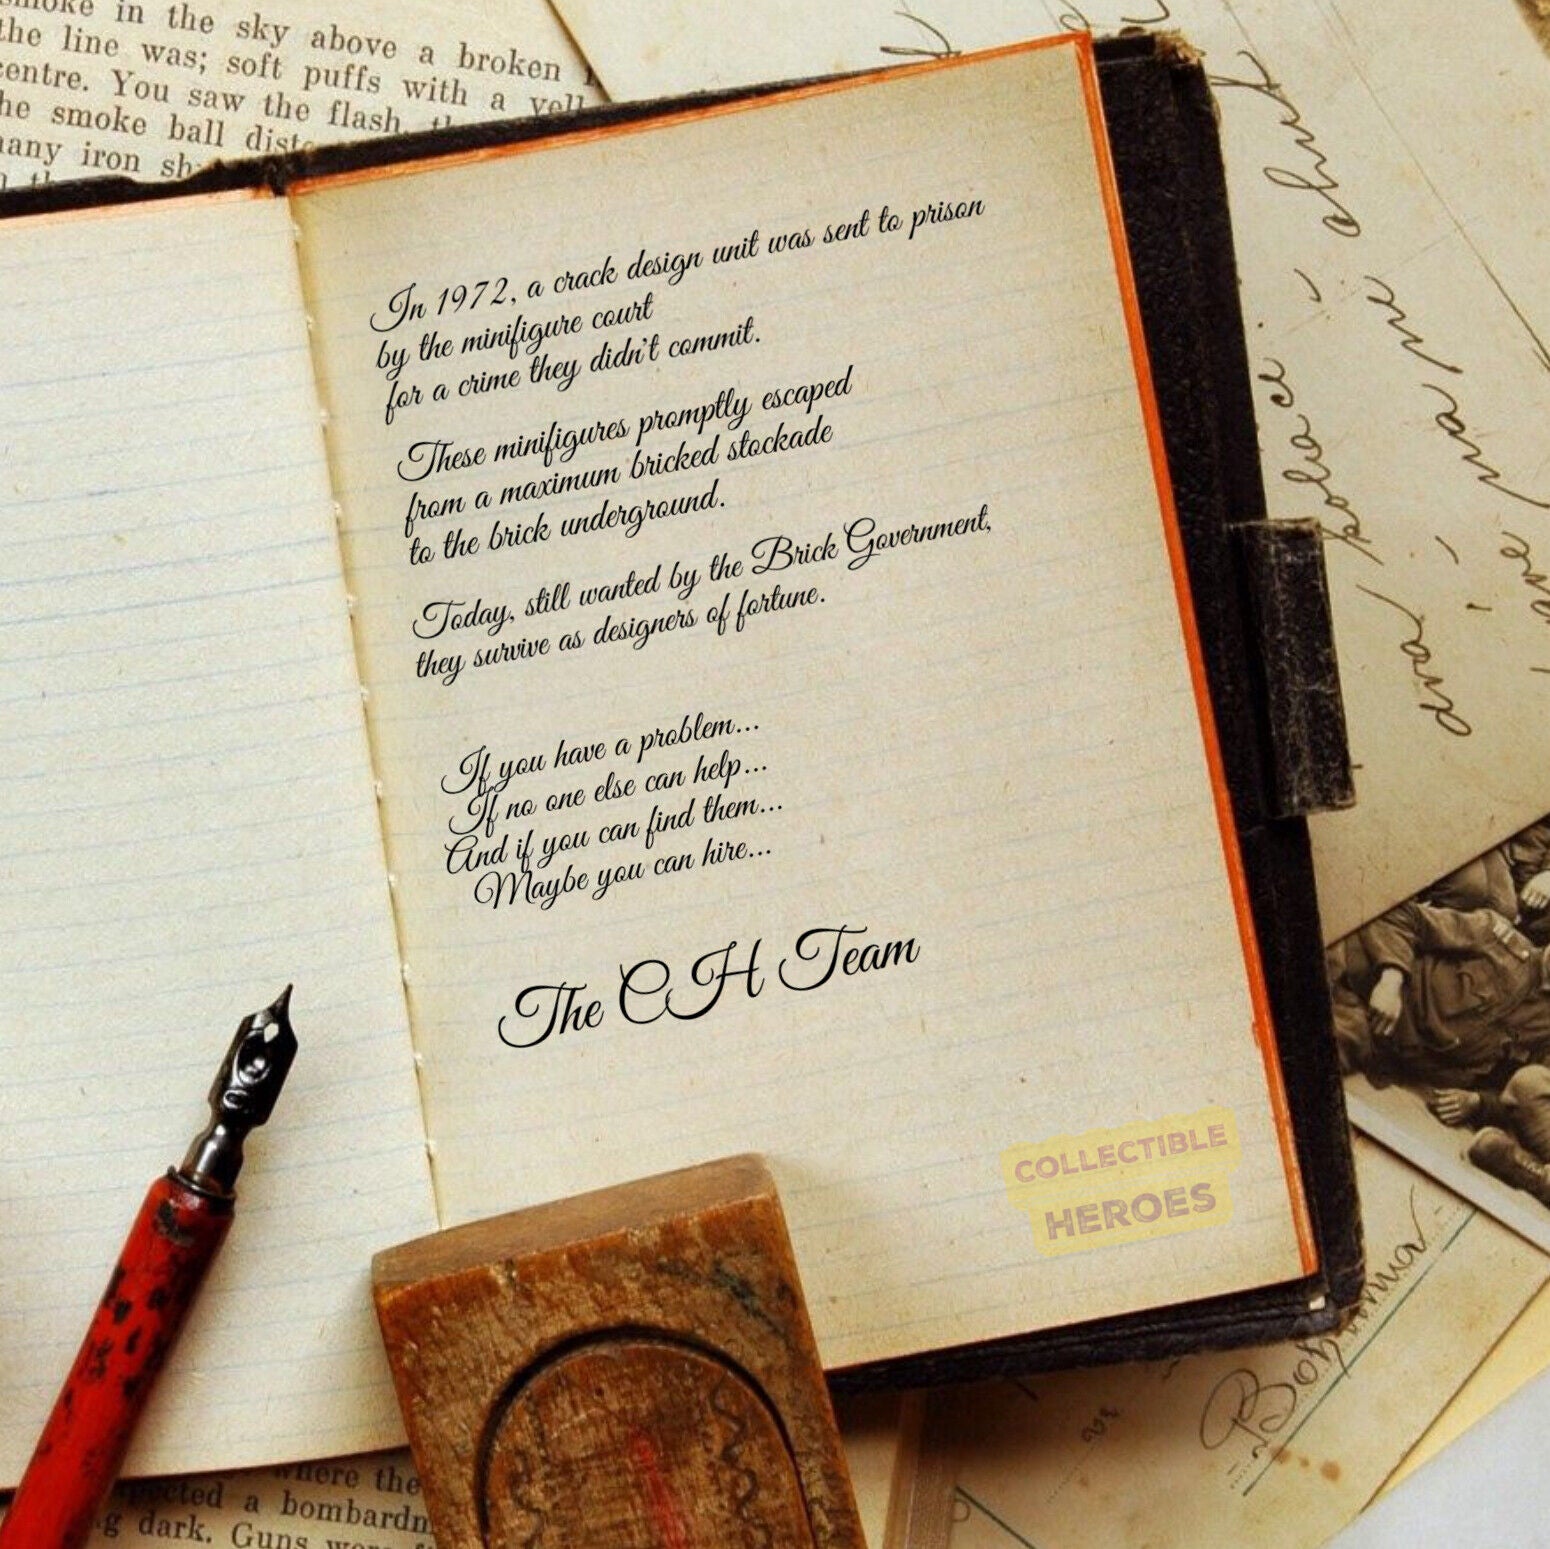 smoke in the sky above a broken
the line was; soft puffs with a yell
centre. You saw the flash,
he smoke ball
many iron
In 1972, a crack design unit was sent to prison
by the minifigure court
for a crime they didn't commit.
These minifigures promptly escaped
from a maximum bricked stockade
to the brick underground.
Today, still wanted by the Brick Government,
they survive as designers of fortune.
If you have a problem...
If no one else can help...
And if you can find them...
Maybe you can hire...
The CH Team
COLLECTIBLE
HEROES
where the
a bombardm
g dark. Guns were